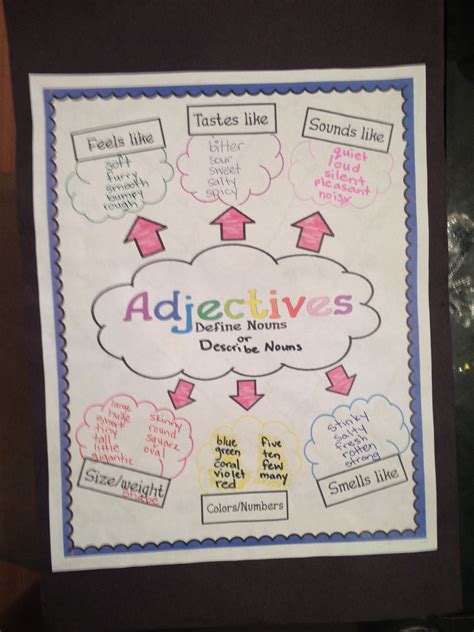 Feels like
soft
furry
smooth
bumpy
rough
Tastes like
bitter
sour
sweet
salty
spicy
Sounds like
quiet
loud
silent
pleasant
noisy
Adjectives
Define Nouns
or
Describe Nouns
huge
short
tiny
tall
little
gigantic
skinny
round
square
oval
Size/weight
shape
blue
green
coral
violet
red
five
ten
few
many
Colors/Numbers
stinky
salty
fresh
rotten
strong
Smells like